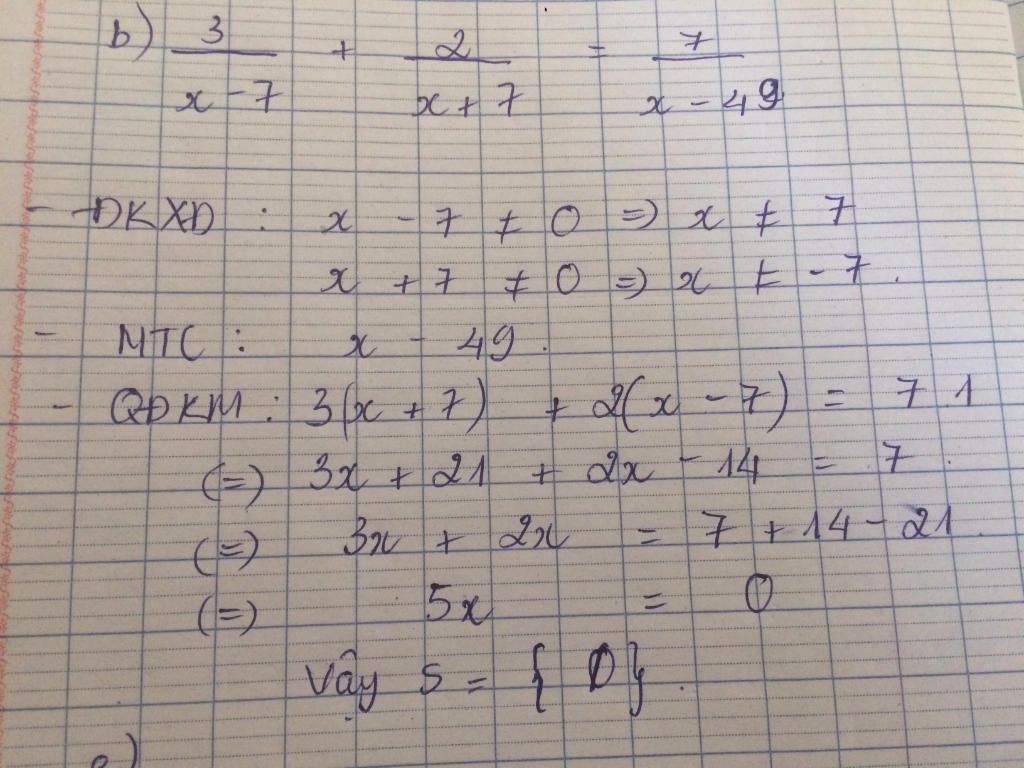 b) 3/(x - 7) + 2/(x + 7) = 7/(x - 49)
- ĐKXĐ : x - 7 ≠ 0 => x ≠ 7
x + 7 ≠ 0 => x ≠ - 7 .
- MTC : x - 49 .
- QĐKM : 3(x + 7) + 2(x - 7) = 7 . 1
(=) 3x + 21 + 2x - 14 = 7 .
(=) 3x + 2x = 7 + 14 - 21 .
(=) 5x = 0
Vậy S = { 0 } .